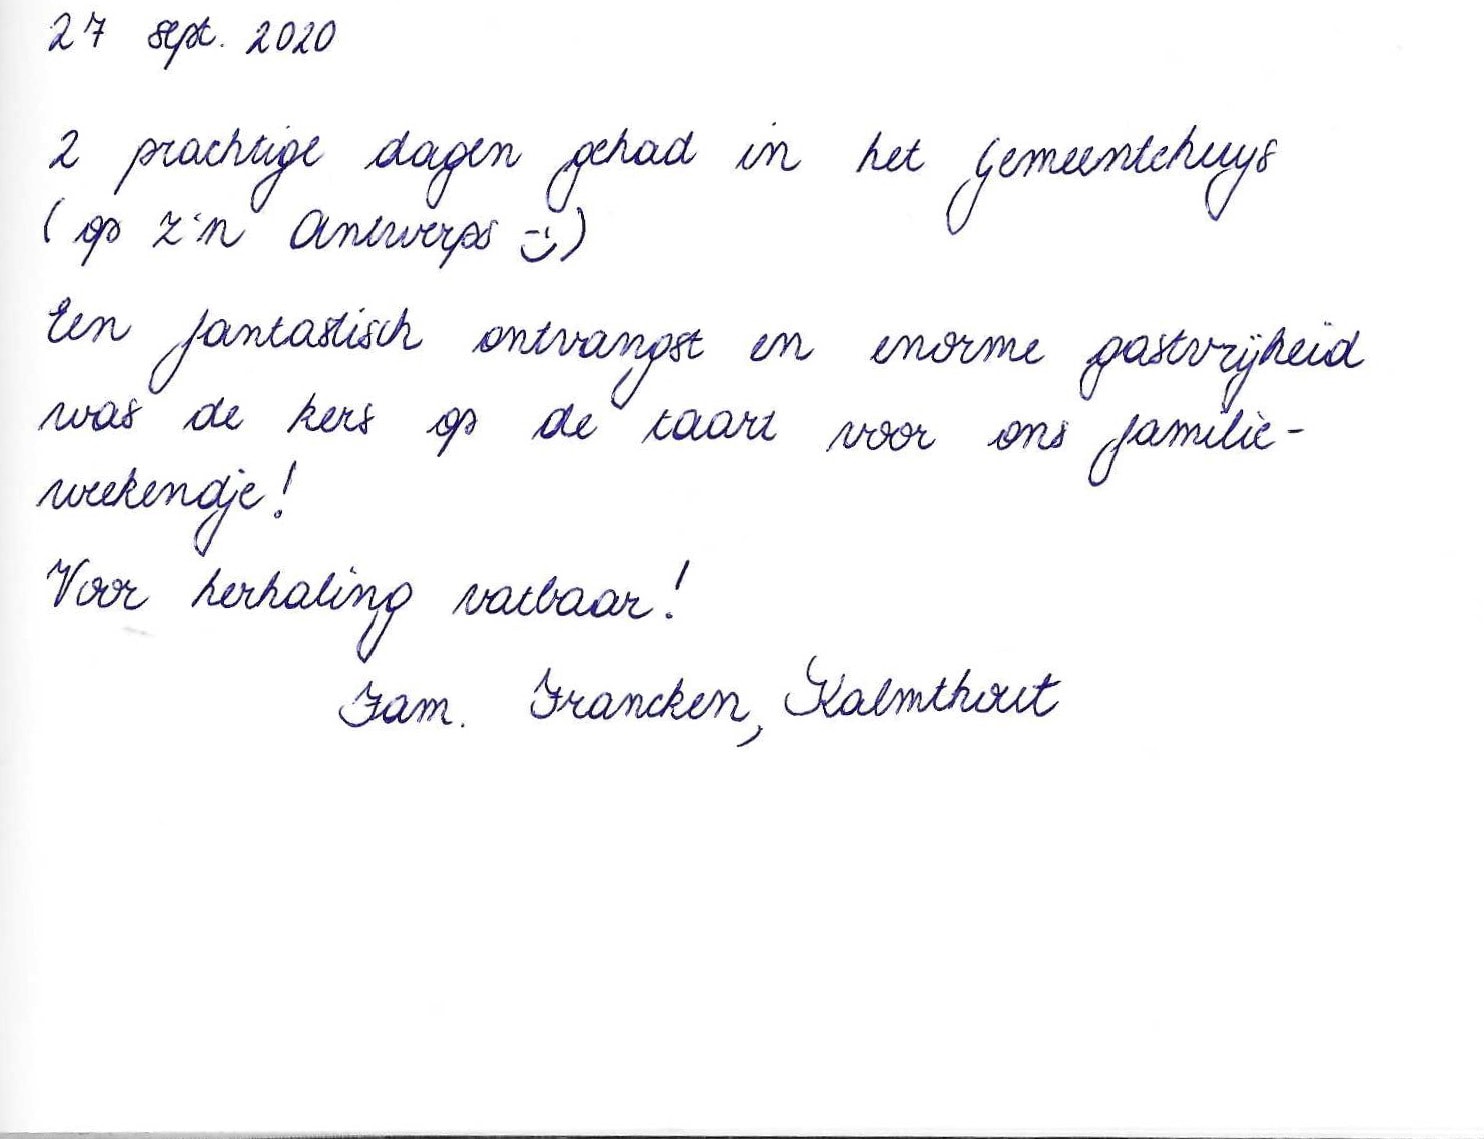 27 sept. 2020
2 prachtige dagen gehad in het Gemeentehuys
(op z'n Antwerps :-))
Een fantastisch ontvangst en enorme gastvrijheid
was de kers op de taart voor ons familie-
weekendje!
Voor herhaling vatbaar!
Fam. Francken, Kalmthout